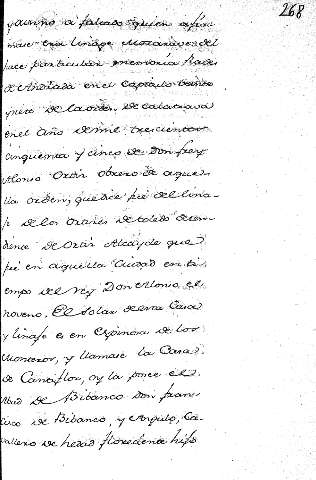 268
y aun no a faltado quien afir
mase era linaje Mozarave del
hace particular memoria Rades
de Andrada en el Capitulo Veinte
y seis de la orden de calatrava
en el año de mil trescientos
cinquenta y cinco de Don frey
Alonso Ortiz obrero de aque
lla orden, que dice fue del lina
je de los Ortizes de toledo decen
diente de Ortiz Alcayde que
fue en aquella Ciudad en ti
empo del rey Don Alonso el
noveno. El solar de esta Casa
y linaje es en Espinosa de los
Monteros, y llamase la Casa
de Cantiflor, oy la posee el
de Bibanco Don fran
cisco de Bibanco, y Angulo, Ca
vallero de hedad floreciente hijo